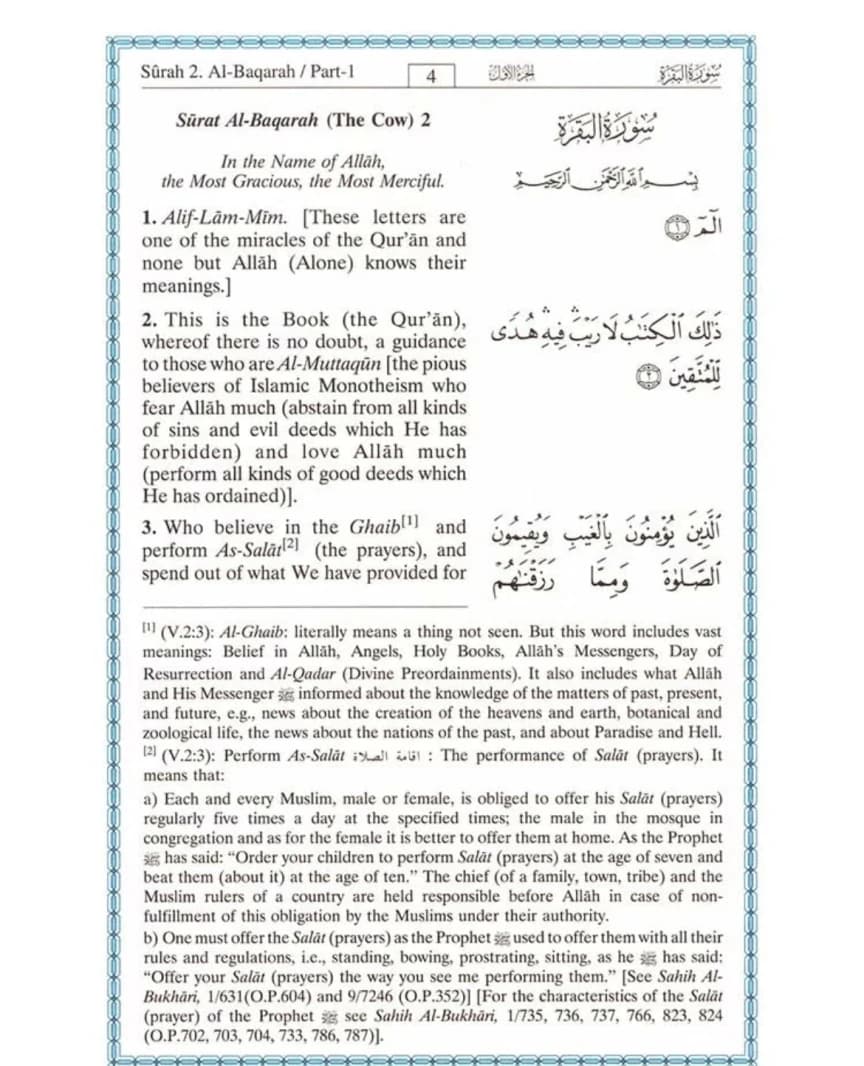 Sûrah 2. Al-Baqarah / Part-1
4
الجزء الأول
سورة البقرة
Sūrat Al-Baqarah (The Cow) 2
In the Name of Allāh,
the Most Gracious, the Most Merciful.
1. Alif-Lām-Mīm. [These letters are
one of the miracles of the Qur’ān and
none but Allāh (Alone) knows their
meanings.]
2. This is the Book (the Qur’ān),
whereof there is no doubt, a guidance
to those who are Al-Muttaqūn [the pious
believers of Islamic Monotheism who
fear Allāh much (abstain from all kinds
of sins and evil deeds which He has
forbidden) and love Allāh much
(perform all kinds of good deeds which
He has ordained)].
3. Who believe in the Ghaib[1] and
perform As-Salāt[2] (the prayers), and
spend out of what We have provided for
سورة البقرة
بِسْمِ ٱللَّهِ ٱلرَّحْمَٰنِ ٱلرَّحِيمِ
الٓمٓ ١
ذَٰلِكَ ٱلْكِتَٰبُ لَا رَيْبَ ۛ فِيهِ ۛ هُدًى
لِّلْمُتَّقِينَ ٢
ٱلَّذِينَ يُؤْمِنُونَ بِٱلْغَيْبِ وَيُقِيمُونَ
ٱلصَّلَوٰةَ وَمِمَّا رَزَقْنَٰهُمْ
[1] (V.2:3): Al-Ghaib: literally means a thing not seen. But this word includes vast
meanings: Belief in Allāh, Angels, Holy Books, Allāh’s Messengers, Day of
Resurrection and Al-Qadar (Divine Preordainments). It also includes what Allāh
and His Messenger ﷺ informed about the knowledge of the matters of past, present,
and future, e.g., news about the creation of the heavens and earth, botanical and
zoological life, the news about the nations of the past, and about Paradise and Hell.
[2] (V.2:3): Perform As-Salāt اقامة الصلاة : The performance of Salāt (prayers). It
means that:
a) Each and every Muslim, male or female, is obliged to offer his Salāt (prayers)
regularly five times a day at the specified times; the male in the mosque in
congregation and as for the female it is better to offer them at home. As the Prophet
ﷺ has said: “Order your children to perform Salāt (prayers) at the age of seven and
beat them (about it) at the age of ten.” The chief (of a family, town, tribe) and the
Muslim rulers of a country are held responsible before Allāh in case of non-
fulfillment of this obligation by the Muslims under their authority.
b) One must offer the Salāt (prayers) as the Prophet ﷺ used to offer them with all their
rules and regulations, i.e., standing, bowing, prostrating, sitting, as he ﷺ has said:
“Offer your Salāt (prayers) the way you see me performing them.” [See Sahih Al-
Bukhāri, 1/631(O.P.604) and 9/7246 (O.P.352)] [For the characteristics of the Salāt
(prayer) of the Prophet ﷺ see Sahih Al-Bukhāri, 1/735, 736, 737, 766, 823, 824
(O.P.702, 703, 704, 733, 786, 787)].